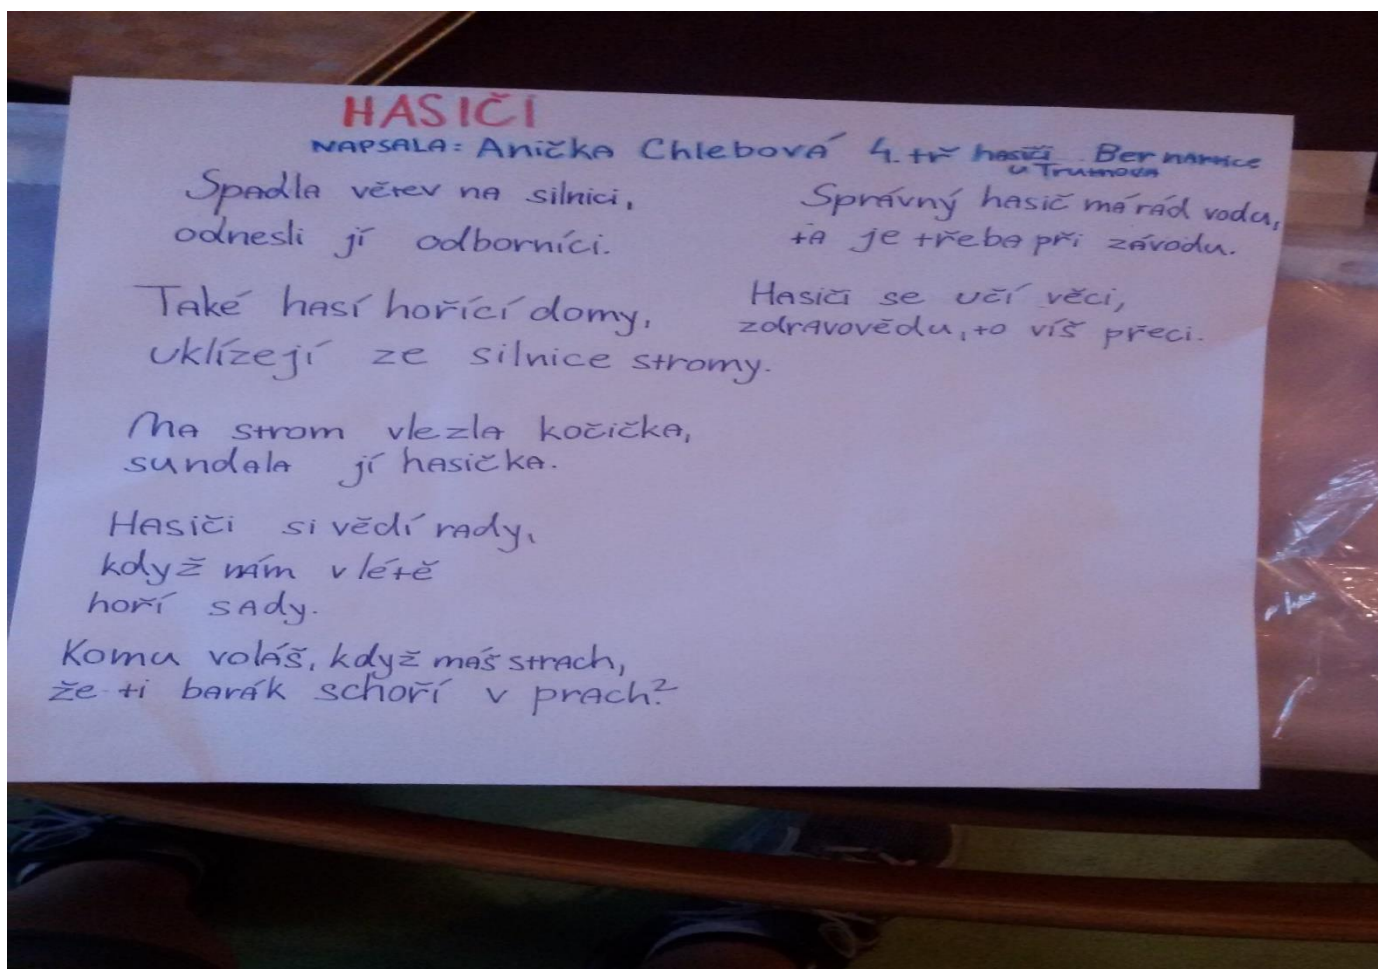 HASIČI
NAPSALA: Anička Chlebová 4. tř hasiči Bernartice
u Trutnova
Spadla větev na silnici,
odnesli jí odborníci.
Také hasí hořící domy,
uklízejí ze silnice stromy.
Na strom vlezla kočička,
sundala jí hasička.
Hasiči si vědí rady,
když nám v létě
hoří sady.
Komu voláš, když máš strach,
že ti barák schoří v prach?
Správný hasič má rád vodu,
ta je třeba při závodu.
Hasiči se učí věci,
zdravovědu, to víš přeci.